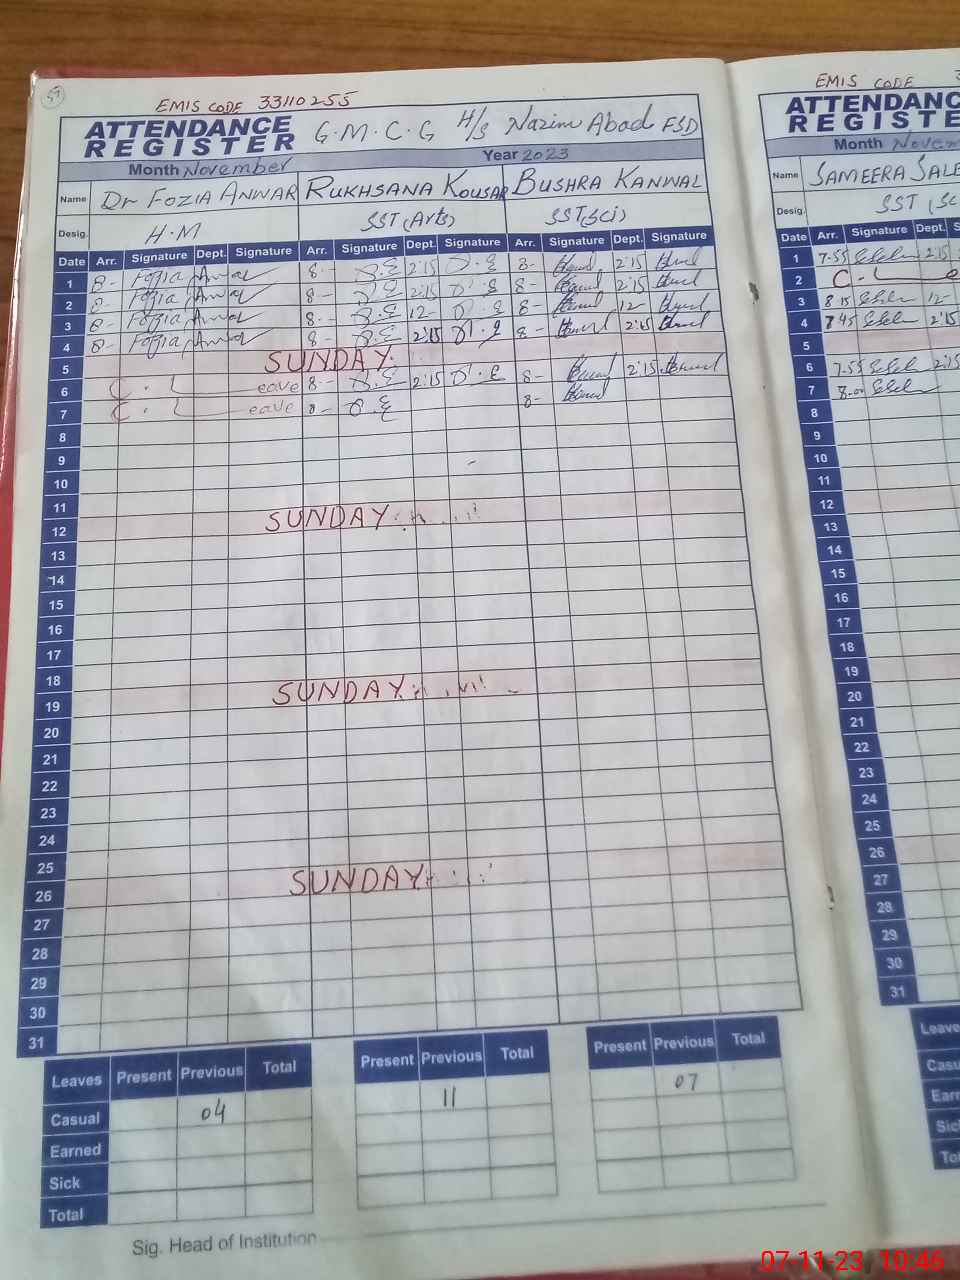 59
EMIS CODE 33110255
ATTENDANCE REGISTER G.M.C.G H/S Nazim Abad FSD
Month November Year 2023
Name Dr FOZIA ANWAR RUKHSANA KOUSAR BUSHRA KANWAL
Desig. H.M SST (Arts) SST (Sci)
Date Arr. Signature Dept. Signature Arr. Signature Dept. Signature Arr. Signature Dept. Signature
1 8- Fozia Anwar 8- 2:15 8- 2:15
2 8- Fozia Anwar 8- 2:15 8- 2:15
3 8- Fozia Anwar 8- 12- 8- 12-
4 8- Fozia Anwar 8- 2:15 8- 2:15
5 SUNDAY
6 C. Leave 8- 2:15 8- 2:15
7 C. Leave 8- 8-
8
9
10
11
12 SUNDAY
13
14
15
16
17
18
19 SUNDAY
20
21
22
23
24
25
26 SUNDAY
27
28
29
30
31
Leaves Present Previous Total Present Previous Total Present Previous Total
Casual 04 11 07
Earned
Sick
Total
Sig. Head of Institution
EMIS CODE
ATTENDANC
REGISTE
Month
Name SAMEERA
Desig. SST (Sc
Date Arr. Signature Dept.
1 7.55 2:15
2 C.
3 8.15 12-
4 7.45 2:15
5
6 7.55 2:15
7 8.00
8
9
10
11
12
13
14
15
16
17
18
19
20
21
22
23
24
25
26
27
28
29
30
31
Leave
Casu
Earn
Sic
To
07-11-23 10:46